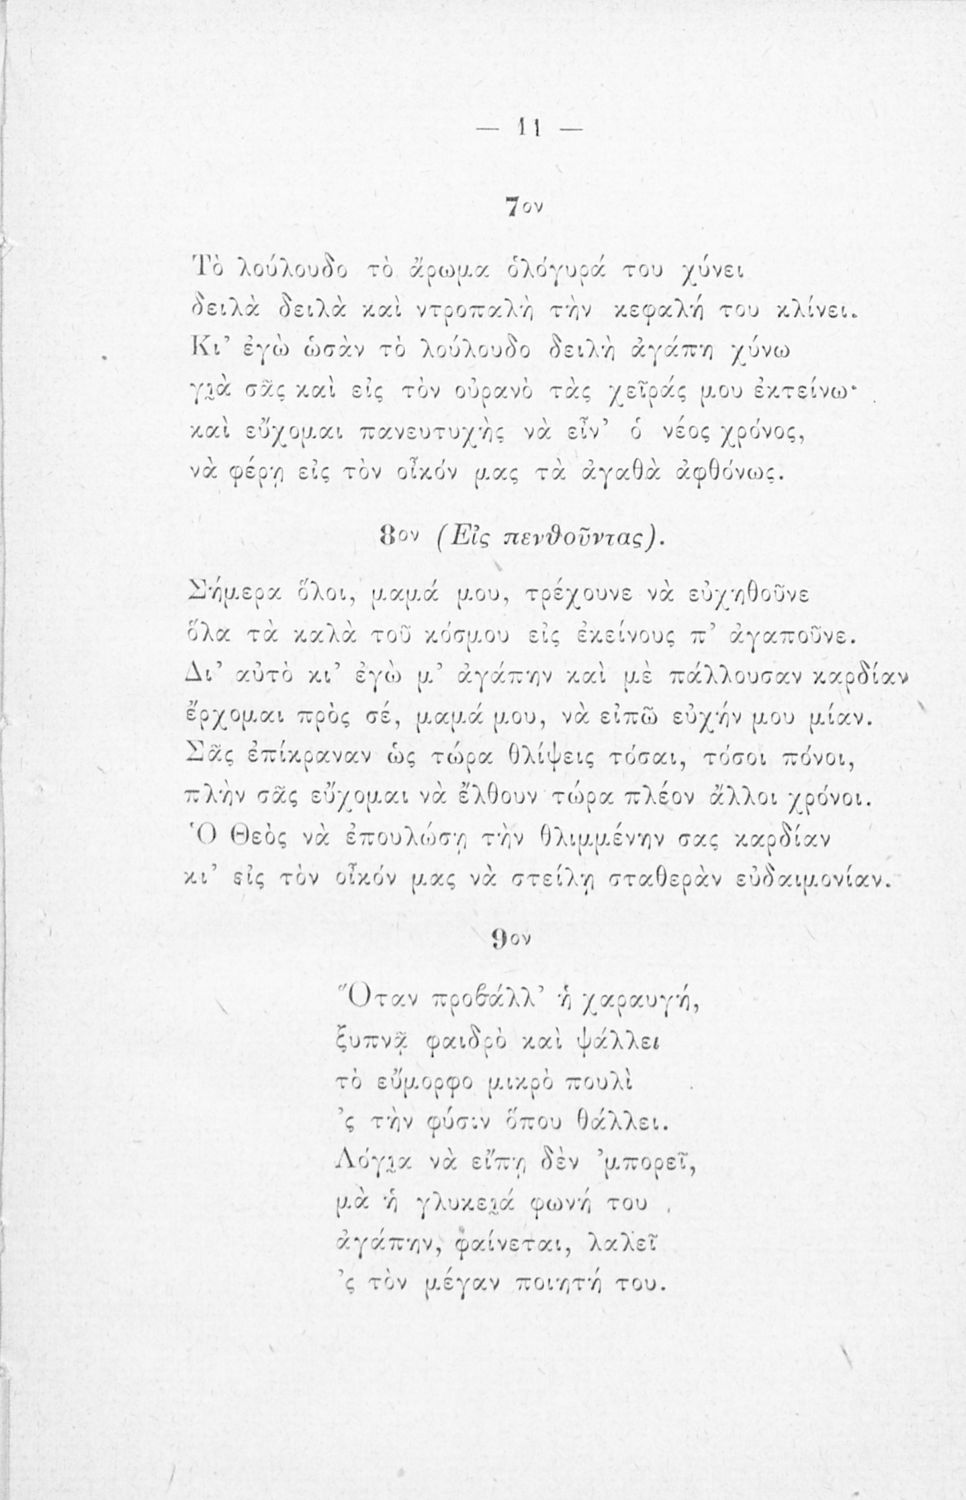 — 11 —
7ον
Τὸ λούλουδο τὸ ἄρωμα ὁλόγυρά του χύνει
δειλὰ δειλὰ καὶ ντροπαλὴ τὴν κεφαλή του κλίνει.
Κι’ ἐγὼ ὡσὰν τὸ λούλουδο δειλὴ ἀγάπη χύνω
γιὰ σᾶς καὶ εἰς τὸν οὐρανὸ τὰς χεῖράς μου ἐκτείνω·
καὶ εὔχομαι πανευτυχὴς νὰ εἶν’ ὁ νέος χρόνος,
νὰ φέρῃ εἰς τὸν οἶκόν μας τὰ ἀγαθὰ ἀφθόνως.
8ον (Εἰς πενθοῦντας).
Σήμερα ὅλοι, μαμά μου, τρέχουνε νὰ εὐχηθοῦνε
ὅλα τὰ καλὰ τοῦ κόσμου εἰς ἐκείνους π’ ἀγαποῦνε.
Δι’ αὐτὸ κι’ ἐγὼ μ’ ἀγάπην καὶ μὲ πάλλουσαν καρδίαν
ἔρχομαι πρὸς σέ, μαμά μου, νὰ εἰπῶ εὐχήν μου μίαν.
Σᾶς ἐπίκραναν ὡς τώρα θλίψεις τόσαι, τόσοι πόνοι,
πλὴν σᾶς εὔχομαι νὰ ἔλθουν τώρα πλέον ἄλλοι χρόνοι.
Ὁ Θεὸς νὰ ἐπουλώσῃ τὴν θλιμμένην σας καρδίαν
κι’ εἰς τὸν οἶκόν μας νὰ στείλῃ σταθερὰν εὐδαιμονίαν.
9ον
Ὅταν προβάλλ’ ἡ χαραυγή,
ξυπνᾷ φαιδρὸ καὶ ψάλλει
τὸ εὔμορφο μικρὸ πουλὶ
’ς τὴν φύσιν ὅπου θάλλει.
Λόγια νὰ εἴπῃ δὲν ’μπορεῖ,
μὰ ἡ γλυκειά φωνή του
ἀγάπην, φαίνεται, λαλεῖ
’ς τὸν μέγαν ποιητή του.